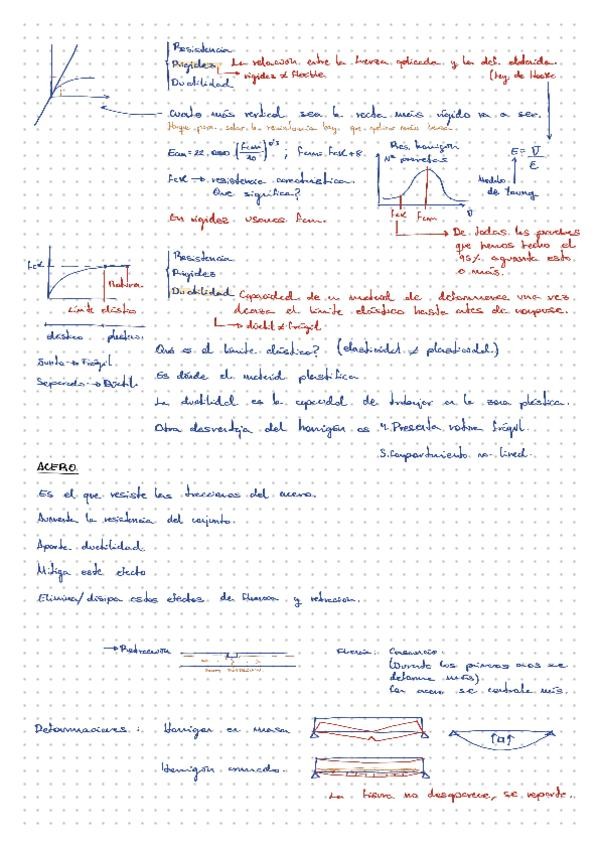 Resistencia
Rigidez La relación entre la fuerza aplicada y la def. obtenida.
rigidez ≠ flexible (Ley de Hooke
Ductilidad
Cuanto más vertical sea la recta más rígido va a ser.
Ecm = 22.000 (fcm/10)^0'3 ; fcm = fck + 8
Fck → resistencia característica.
Que significa?
En rigidez usamos fcm.
Nº probetas
Fck Fcm
E = σ/ε
Modulo de Young
De todas las probetas
que hemos hecho el
95% aguanta esto
o más.
Fck
Rotura
Límite elástico
elástico plástico
Junto → Frágil
Separado → Dúctil
Resistencia
Rigidez
Ductilidad Capacidad de un material de deformarse una vez
alcanza el límite elástico hasta antes de romperse.
→ dúctil ≠ frágil
Qué es el límite elástico? (elasticidad ≠ plasticidad)
Es dónde el material plastifica
La ductilidad es la capacidad de trabajar en la zona plástica.
Otra desventaja del hormigón es 4. Presenta rotura frágil.
5. Comportamiento no lineal.
ACERO
Es el que resiste las tracciones del acero.
Aumenta la resistencia del conjunto.
Aporta ductilidad.
Mitiga este efecto
Elimina/disipa estos efectos de fluencia y retracción.
→ Retracción
Fluencia: Cansancio.
(Durante los primeros años se
deforma más).
Con acero se controla más.
Deformaciones: Hormigón en masa
Hormigón armado.
La fisura no desaparece, se reparte.